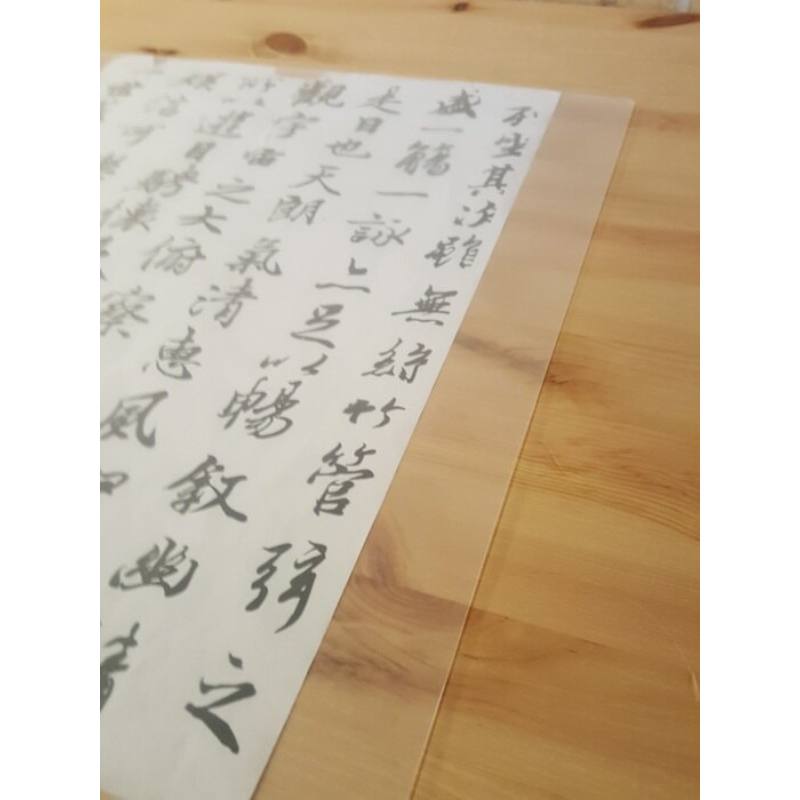 列坐其次雖無絲竹管弦之
盛一觴一詠亦足以暢叙幽情
是日也天朗氣清惠風和
觀宇宙之大俯察
所以遊目騁懷
娛信可樂